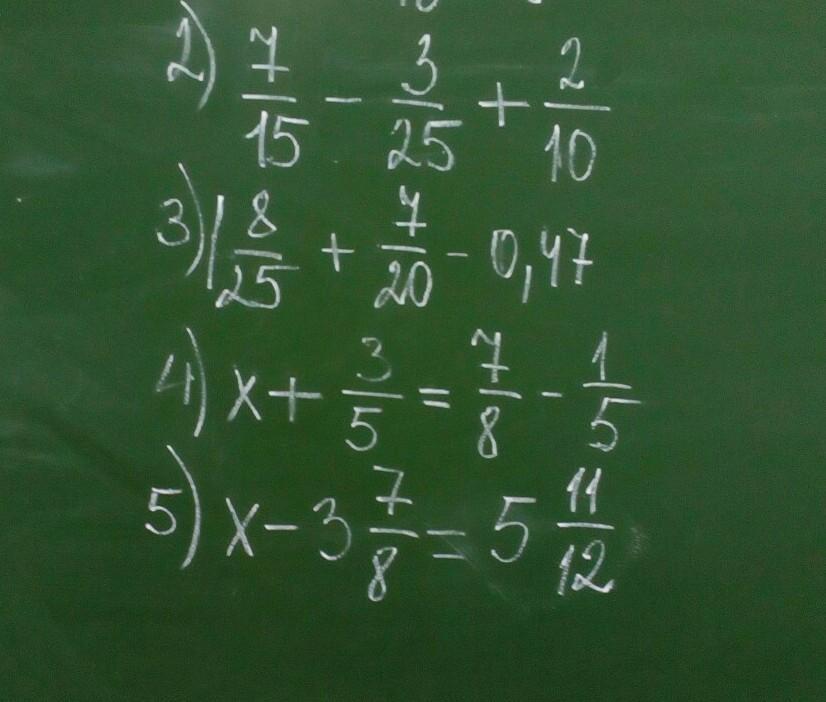 2) 7/15 - 3/25 + 2/10
3) 1 8/25 + 7/20 - 0,47
4) x + 3/5 = 7/8 - 1/5
5) x - 3 7/8 = 5 11/12